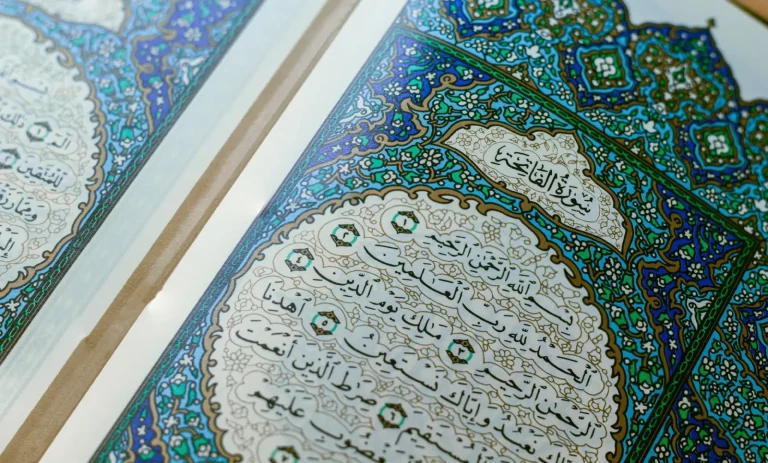 سُورَةُ الْفَاتِحَةِ
بِسْمِ اللَّهِ الرَّحْمَٰنِ الرَّحِيمِ ١
الْحَمْدُ لِلَّهِ رَبِّ الْعَٰلَمِينَ ٢
الرَّحْمَٰنِ الرَّحِيمِ ٣ مَٰلِكِ يَوْمِ الدِّينِ ٤
نَعْبُدُ وَإِيَّاكَ نَسْتَعِينُ ٥ اهْدِنَا
الْمُسْتَقِيمَ ٦ صِرَٰطَ الَّذِينَ أَنْعَمْتَ
عَلَيْهِمْ
٧
الٓمٓ ١ ذَٰلِكَ
لِلْمُتَّقِينَ ٢